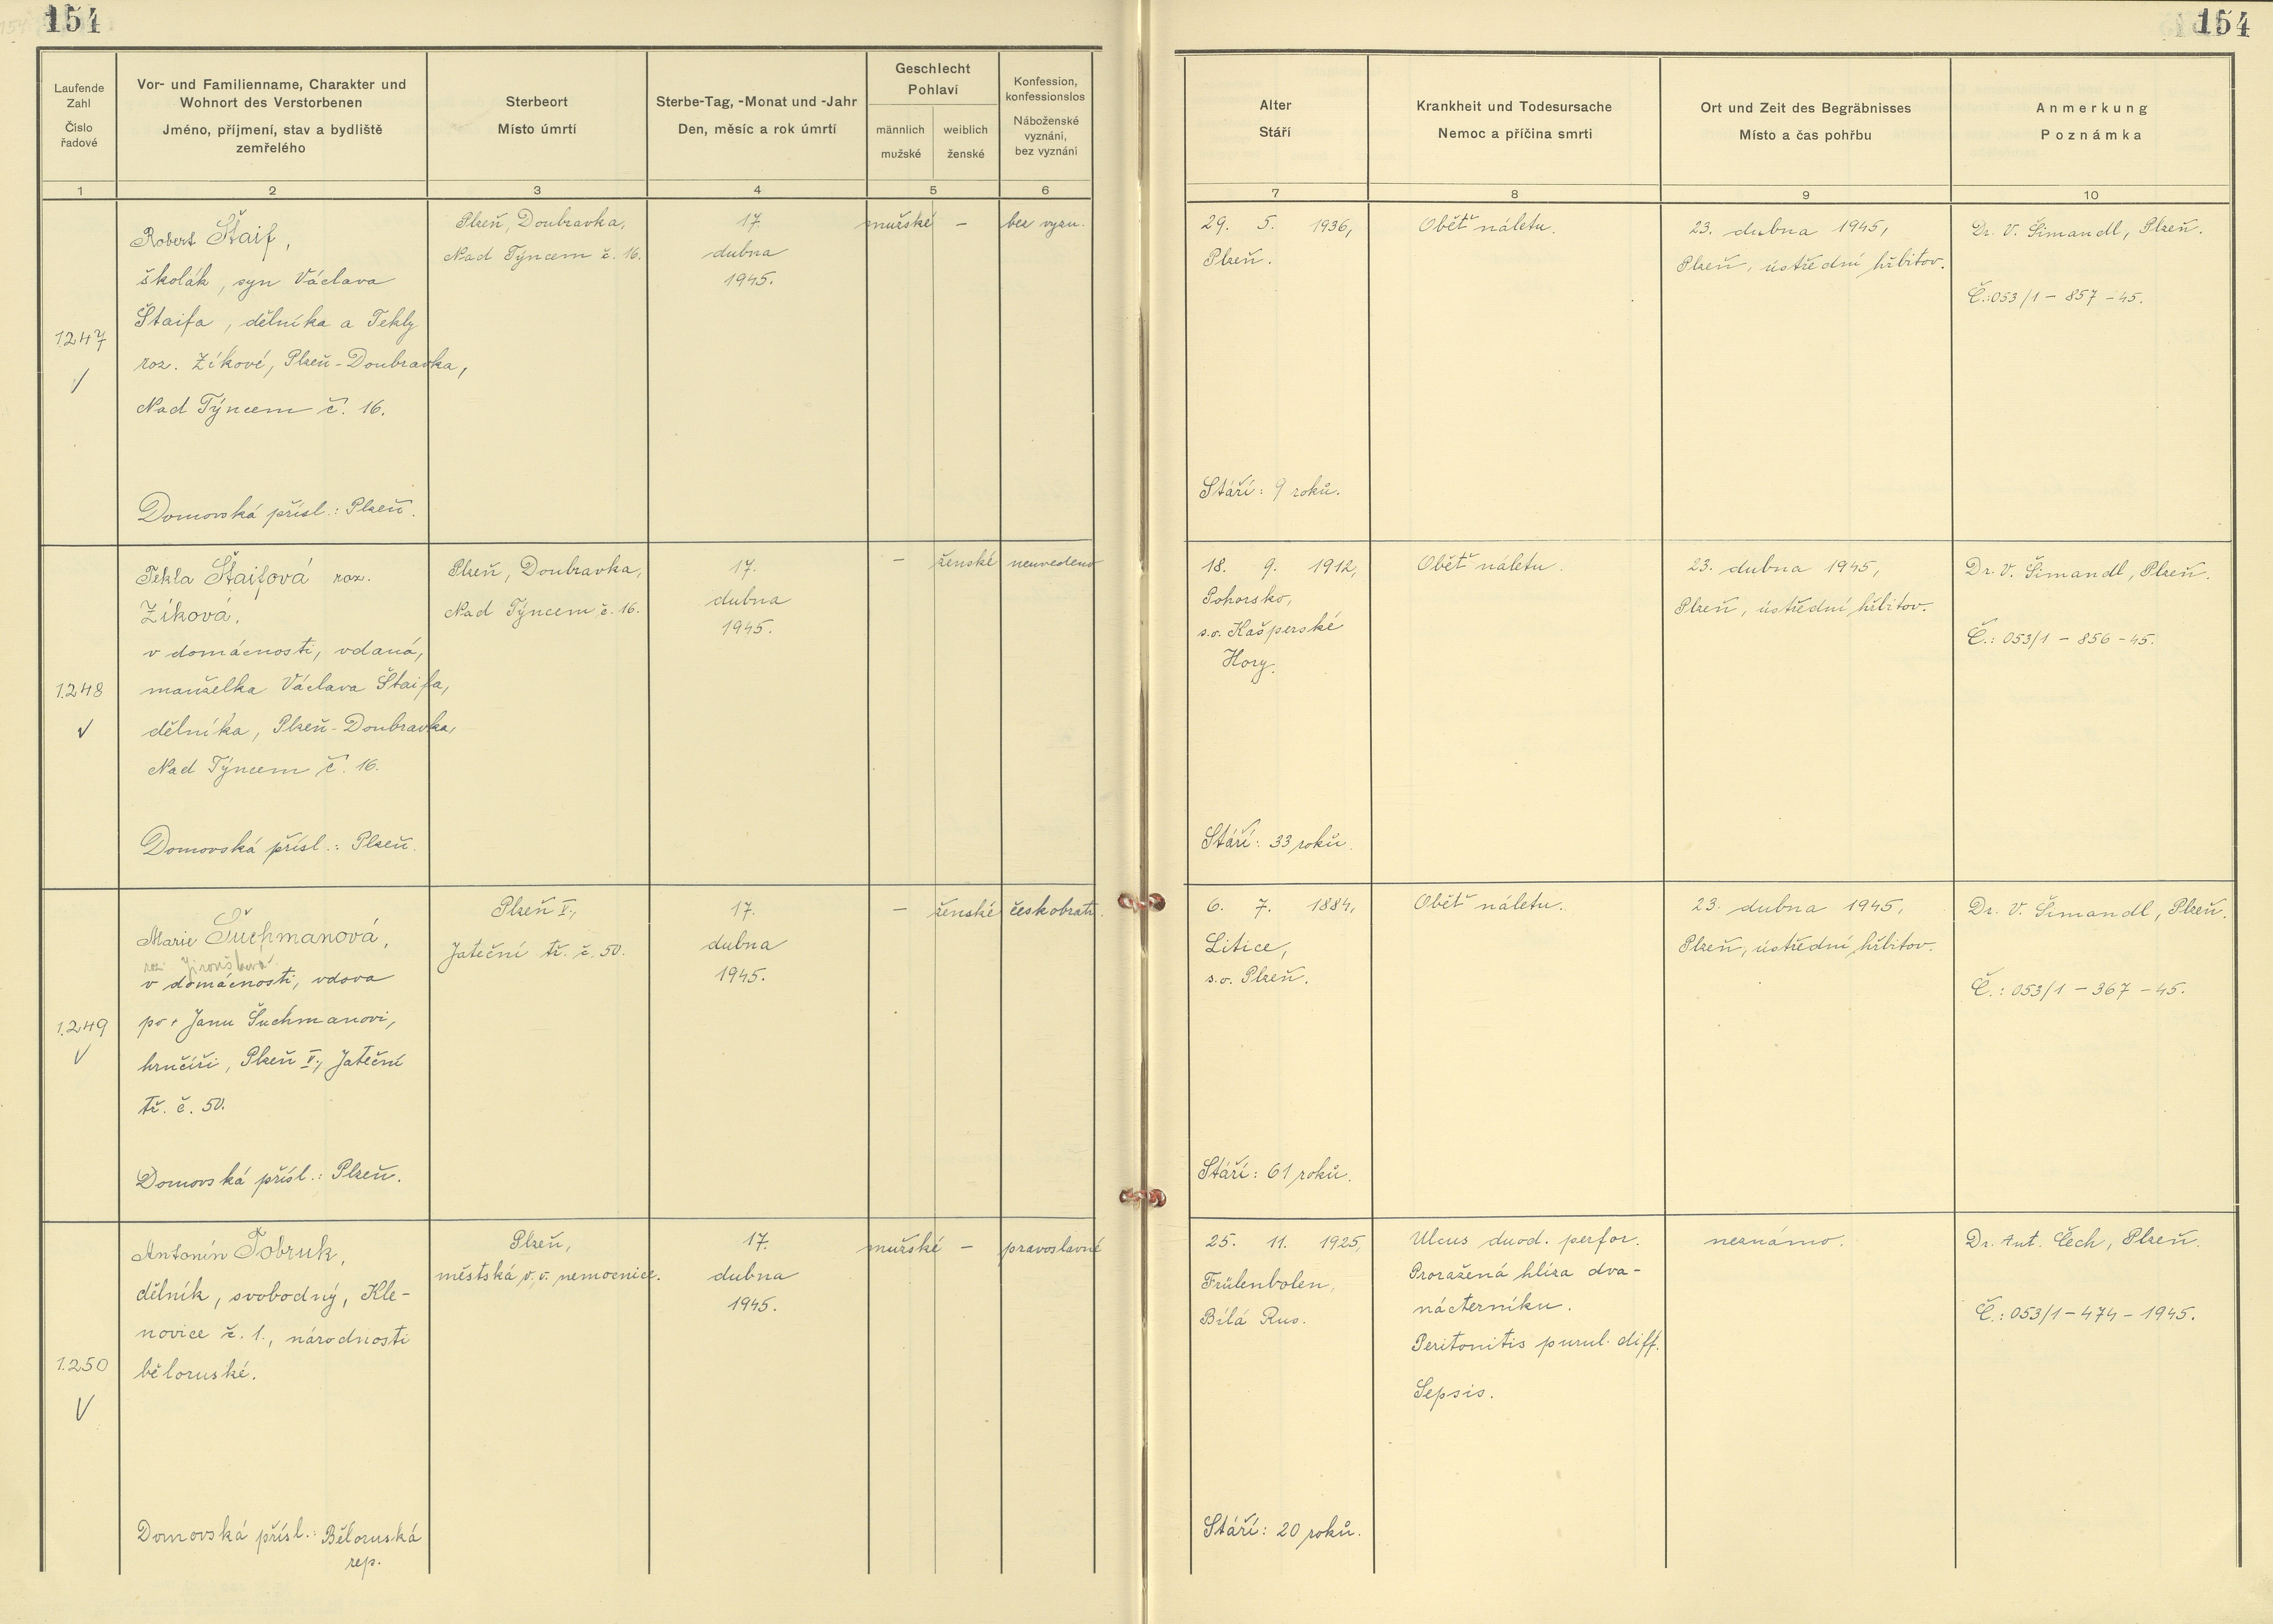 154
154
Laufende
Zahl
Číslo
řadové
Vor- und Familienname, Charakter und
Wohnort des Verstorbenen
Jméno, příjmení, stav a bydliště
zemřelého
Sterbeort
Místo úmrtí
Sterbe-Tag, -Monat und -Jahr
Den, měsíc a rok úmrtí
Geschlecht
Pohlaví
männlich
mužské
weiblich
ženské
Konfession,
konfessionslos
Náboženské
vyznání,
bez vyznání
Alter
Stáří
Krankheit und Todesursache
Nemoc a příčina smrti
Ort und Zeit des Begräbnisses
Místo a čas pohřbu
Anmerkung
Poznámka
1
2
3
4
5
6
7
8
9
10
1247
Robert Štaif,
školák, syn Václava
Štaifa, dělníka a Tekly
roz. Zíkové, Plzeň-Doubravka,
Nad Týncem č. 16.
Domovská přísl.: Plzeň.
Plzeň, Doubravka,
Nad Týncem č. 16.
17.
dubna
1945.
mužské
–
bez vyzn.
29. 5. 1936,
Plzeň.
Stáří: 9 roků.
Oběť náletu.
23. dubna 1945,
Plzeň, ústřední hřbitov.
Dr. V. Šimandl, Plzeň.
Č.:053/1 – 857 – 45.
1248
Tekla Štaifová roz.
Zíková,
v domácnosti, vdaná,
manželka Václava Štaifa,
dělníka, Plzeň-Doubravka,
Nad Týncem č. 16.
Domovská přísl.: Plzeň.
Plzeň, Doubravka,
Nad Týncem č. 16.
17.
dubna
1945.
–
ženské
neuvedeno
18. 9. 1912,
Pohorsko,
s.o. Kašperské
Hory.
Stáří: 33 roků.
Oběť náletu.
23. dubna 1945,
Plzeň, ústřední hřbitov.
Dr. V. Šimandl, Plzeň.
Č.: 053/1 – 856 – 45.
1249
Marie Šuchmanová,
roz. Jiroušková
v domácnosti, vdova
po + Janu Šuchmanovi,
hrnčíři, Plzeň V., Jateční
tř. č. 50.
Domovská přísl.: Plzeň.
Plzeň V.,
Jateční tř. č. 50.
17.
dubna
1945.
–
ženské
českobratr.
6. 7. 1884,
Litice,
s.o. Plzeň.
Stáří: 61 roků.
Oběť náletu.
23. dubna 1945,
Plzeň, ústřední hřbitov.
Dr. V. Šimandl, Plzeň.
Č.: 053/1 – 367 – 45.
1250
Antonín Tobruk,
dělník, svobodný, Kle-
novice č. 1., národnosti
běloruské.
Domovská přísl.: Běloruská
rep.
Plzeň,
městská v.v. nemocnice.
17.
dubna
1945.
mužské
–
pravoslavné
25. 11. 1925,
Frülenbolen,
Bílá Rus.
Stáří: 20 roků.
Ulcus duod. perfor.
Proražená hlíza dva-
nácterníku.
Peritonitis purul. diff.
Sepsis.
neznámo.
Dr. Ant. Čech, Plzeň.
Č.: 053/1 – 474 – 1945.